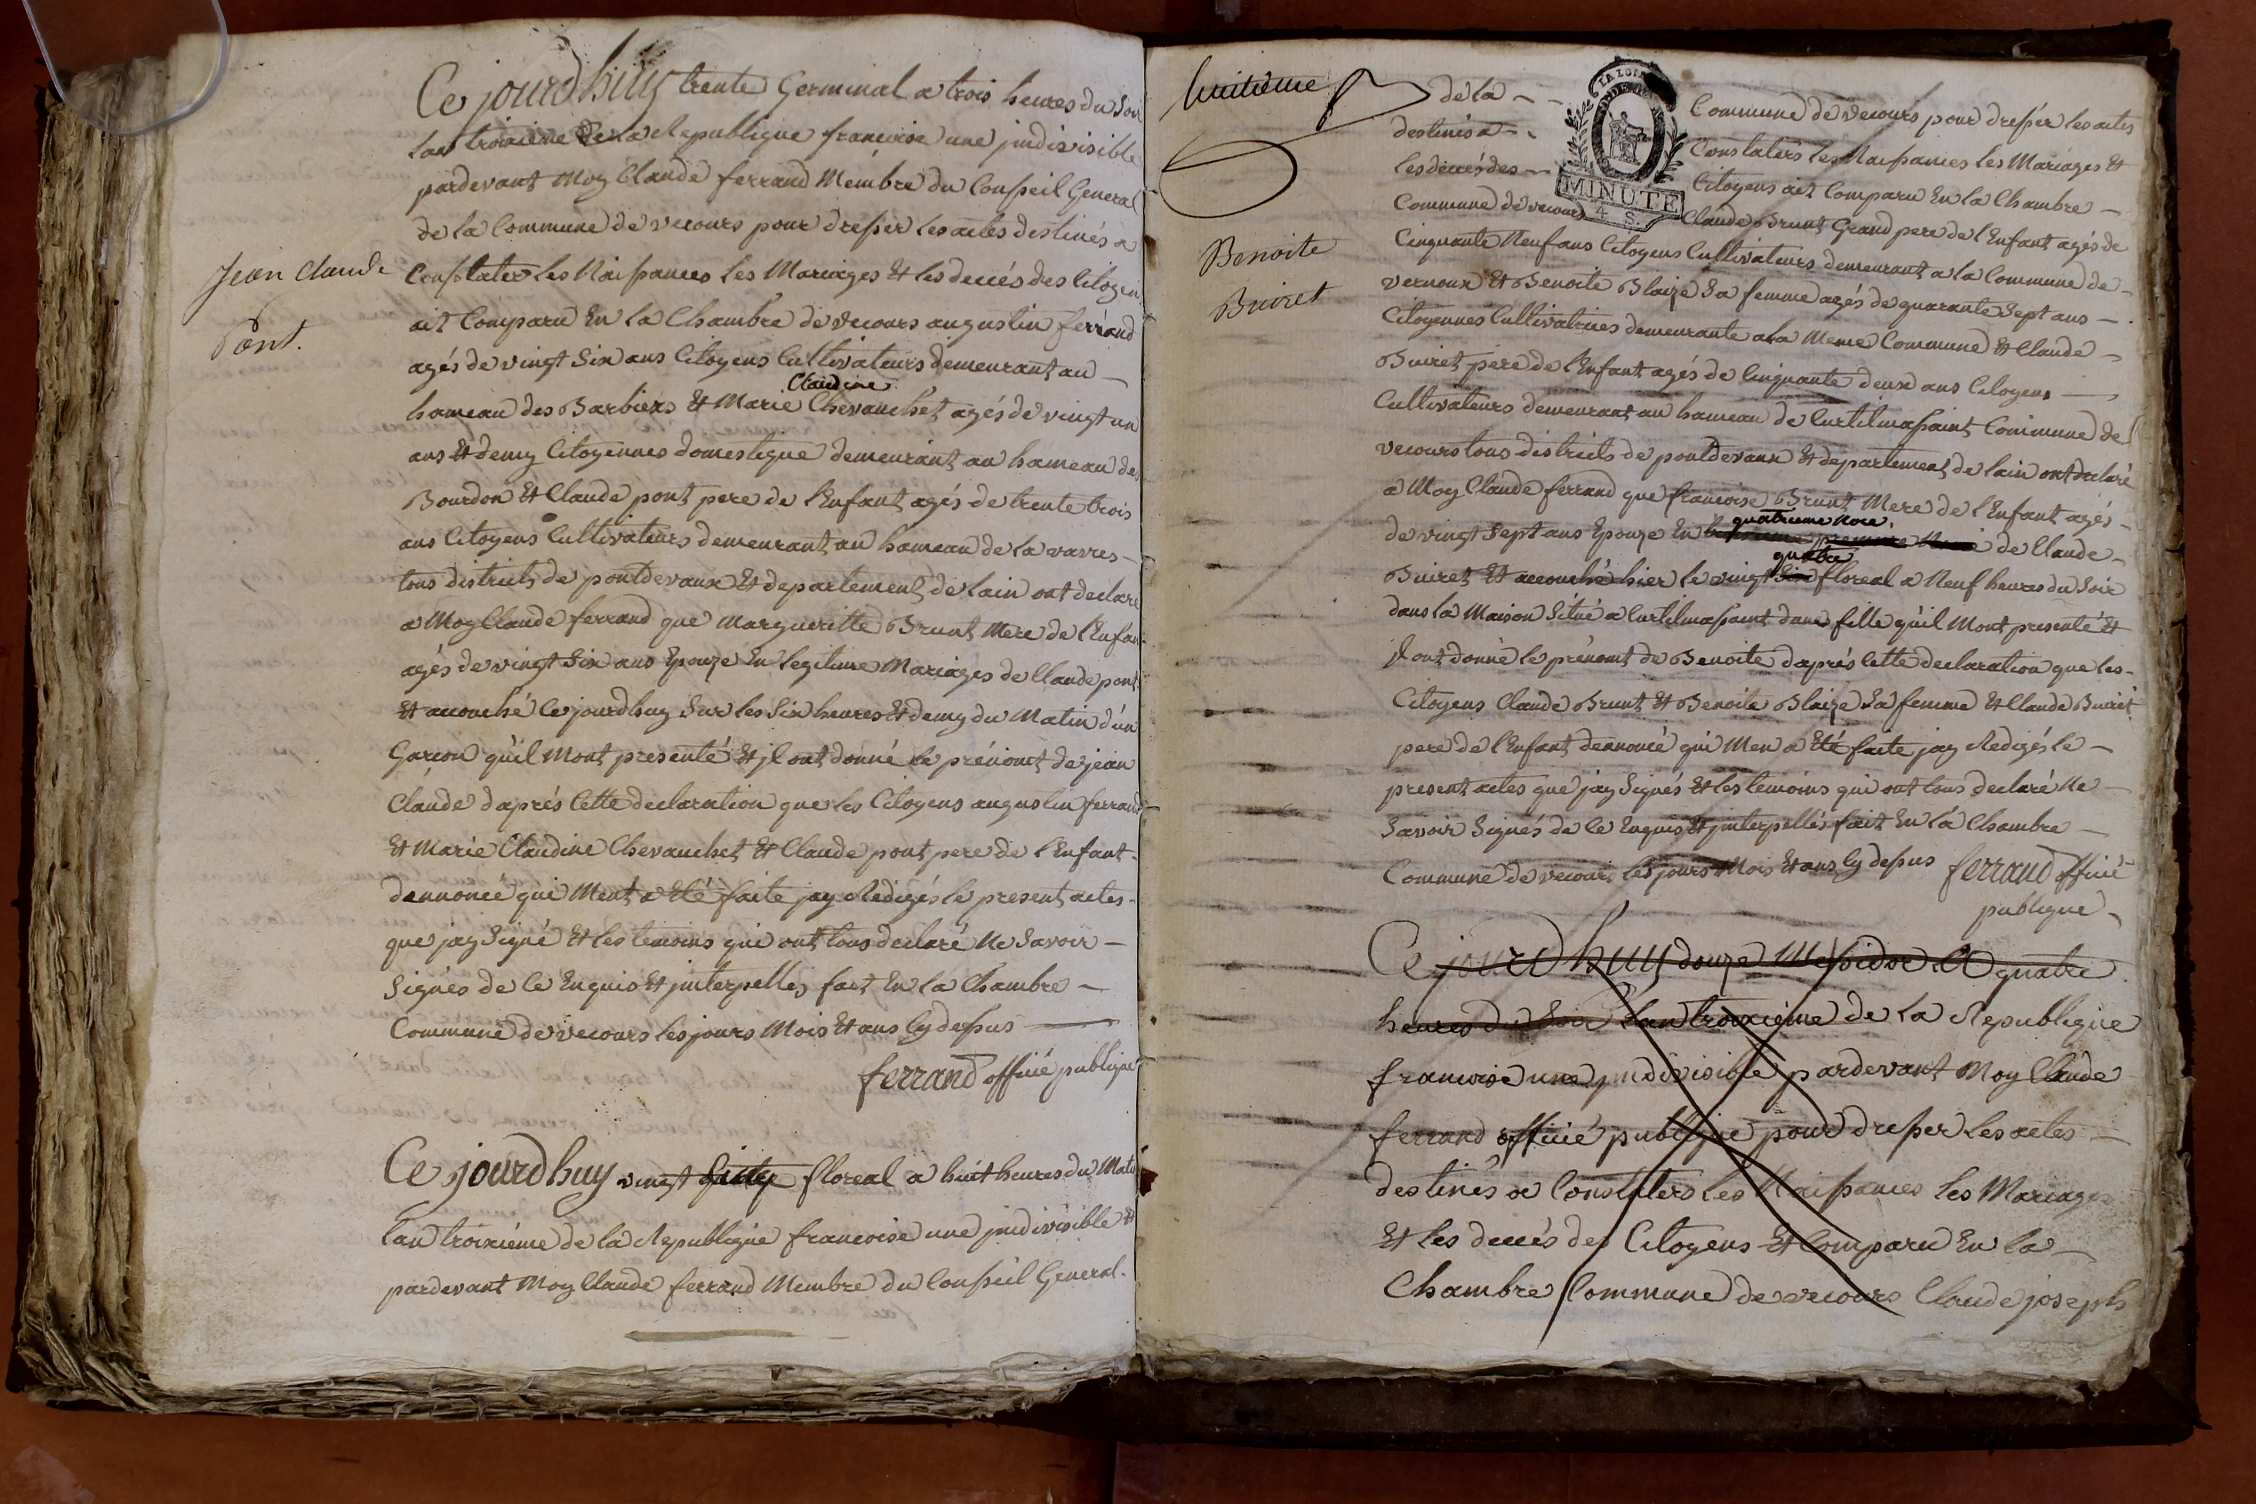 Ce jourdhuy trente Germinal a trois heures du Soir
Lan troixieme de la Republique francoise une jndivisible
pardevant Moy Claude ferrand Membre du Conseil General
de la Commune de vecours pour dresser les actes destinés a
Jean Claude
pont.
Constater les Naissances les Mariages Et les deccés des Citoyen
ait Comparu En la Chambre de vecours augustin ferrand
agés de vingt Six ans Citoyens Cultivateurs demeurant au
Claudine
hameau des Barbiers Et Marie Chevauchet agés de vingt un
ans Et demy Citoyennes domestique demeurant au hameau de
Bourdon Et Claude pont pere de l'Enfant agés de trente trois
ans Citoyens Cultivateurs demeurant au hameau de la vavres
tous districts de pontdevaux Et departement de lain ont declaré
a Moy Claude ferrand que Margueritte Brunt Mere de l'Enfan
agés de vingt Six ans Epouze En legitime Mariages de Claude pont
Et accouché Ce jourdhuy Sur les Six heures Et demy du Matin d'un
Garcon qu'il Mont presenté Et jl ont donné le prénomt de jean
Claude daprés Cette declaration que les Citoyens augustin ferrand
Et Marie Claudine Chevauchet Et Claude pont pere de l'Enfant
dennoncé qui Ment a Eté faite jay Redigés le present actes
que jay Signé Et les temoins qui ont tous declaré Ne Savoir
Signés de Ce Enquis Et jnterpellés fait En la Chambre
Commune de vecours les jours Mois Et ans Cy dessus
ferrand officié publique
Ce jourdhuy vingt floreal a huit heures du Matin
Lan troixiéme de la Republique francoise une jndivisible Et
pardevant Moy Claude ferrand Membre du Conseil General.
huitième
LA LOI
MINUTE
4 S.
de la Commune de vecours pour dresser les actes
destinés a Constaters les Naissances les Mariages Et
les deccés des Citoyens ait Comparu En la Chambre
Commune de vecours Claude Brunt Grand pere de l'Enfant agés de
Benoite
Buiret
Cinquante Neuf ans Citoyens Cultivateurs demeurant a la Commune de
vernoux Et Benoite Blaize Sa femme agés de quarante Sept ans
Citoyennes Cultivatrices demeurante a la Meme Commune Et Claude
Buiret pere de l'Enfant agés de Cinquante deux ans Citoyens
Cultivateurs demeurant au hameau de Curtilmassaint Commune de
vecours tous districts de pontdevaux Et departement de lain ont declaré
a Moy Claude ferrand que francoise Brunt Mere de l'Enfant agés
quatrieme Noce
de vingt Sept ans Epouze En premiere Noce de Claude
quatre
Buiret Et accouché hier le vingt Six floreal a Neuf heures du Soir
dans la Maison Sitúé a Curtilmassaint dune fille qu'il Mont presenté Et
Jl ont donné le prénomt de Benoite daprés Cette declaration que les
Citoyens Claude Brunt Et Benoite Blaize Sa femme Et Claude Buiret
pere de l'Enfant dennoncé qui Men a Eté faite jay Redigés le
present actes que jay Signés Et les temoins qui ont tous declaré Ne
Savoir Signés de Ce Enquis Et jnterpellés fait En la Chambre
Commune de vecours les jours Mois Et ans Cy dessus ferrand officié
publique
Ce jourdhuy douze Messidor A quatre
heures du Soir Lan troixieme de la Republique
francoise une jndivisible pardevant Moy Claude
ferrand officié publique pour dresser les actes
destinés a Constaters les Naissances les Mariages
Et les deccés des Citoyens Et Comparu En la
Chambre Commune de vecours Claude joseph